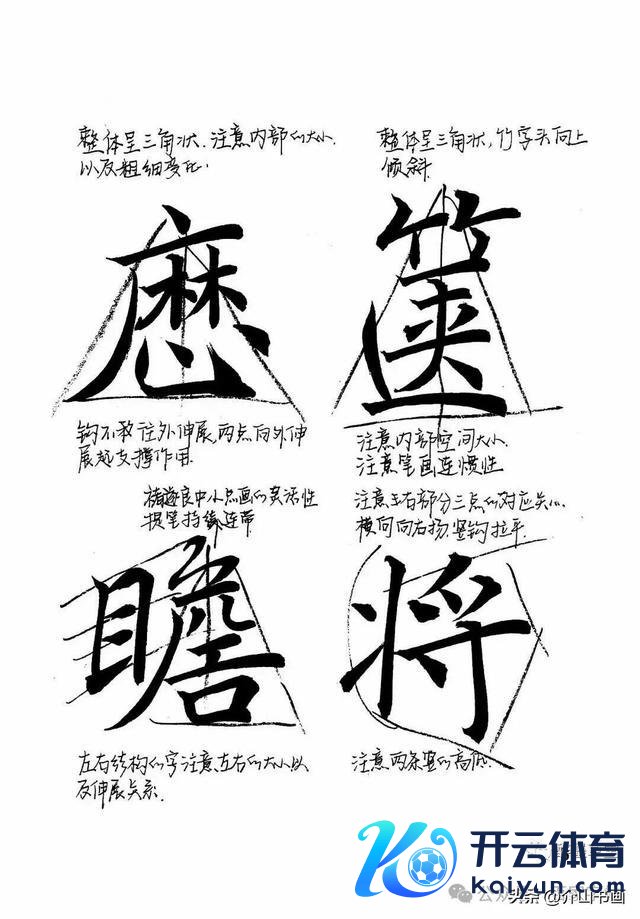 整体呈三角状.注意内部的大小
以及粗细变化.
整体呈三角状,竹字头向上
倾斜
麽
箧
钩不教往外伸展,两点向外伸
展起支撑作用.
注意内部空间大小.
注意笔画连惯性
褚遂良中小点画的灵活性
提笔持续连带
注意左右部分三点的对应关心.
横向向右扬.竖钩拉平.
瞻
将
左右结构的字注意左右的大小以
及伸展关系.
注意两条竖的高低.
开云体育
kaiyun.com
公众
头条@介山书画